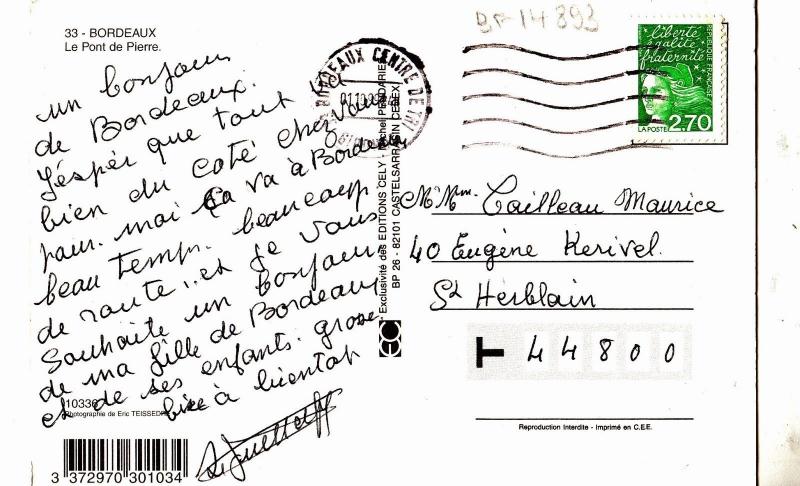 33 - BORDEAUX
Le Pont de Pierre.
un bonjour
de Bordeaux.
J'éspér que tout va
bien du coté chez vous
pour. moi ça va à Bordeaux
beau temps. beaucoup
de route.. et je vous
souhaite un bonjour
de ma fille de Bordeaux
et de ses enfants. grosse
bise à bientot
10336
Photographie de Eric TEISSEDRE
3 372970 301034
Exclusivité des EDITIONS CELY - Michel PENDARIES
BP 26 - 82101 CASTELSARRASIN CEDEX
BORDEAUX CENTRE DE TRI
BF 14 893
liberté
égalité
fraternité
REPUBLIQUE FRANÇAISE
LA POSTE 2,70
M. Mme. Cailleau Maurice
40 Eugène Kerivel.
St Herblain
44800
Reproduction Interdite - Imprimé en C.E.E.